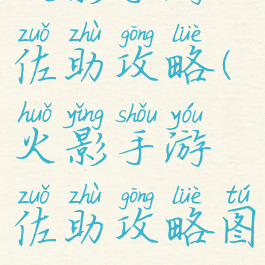 zuǒ zhù gōng lüè
佐助攻略(
huǒ yǐng shǒu yóu
火影手游
zuǒ zhù gōng lüè tú
佐助攻略图